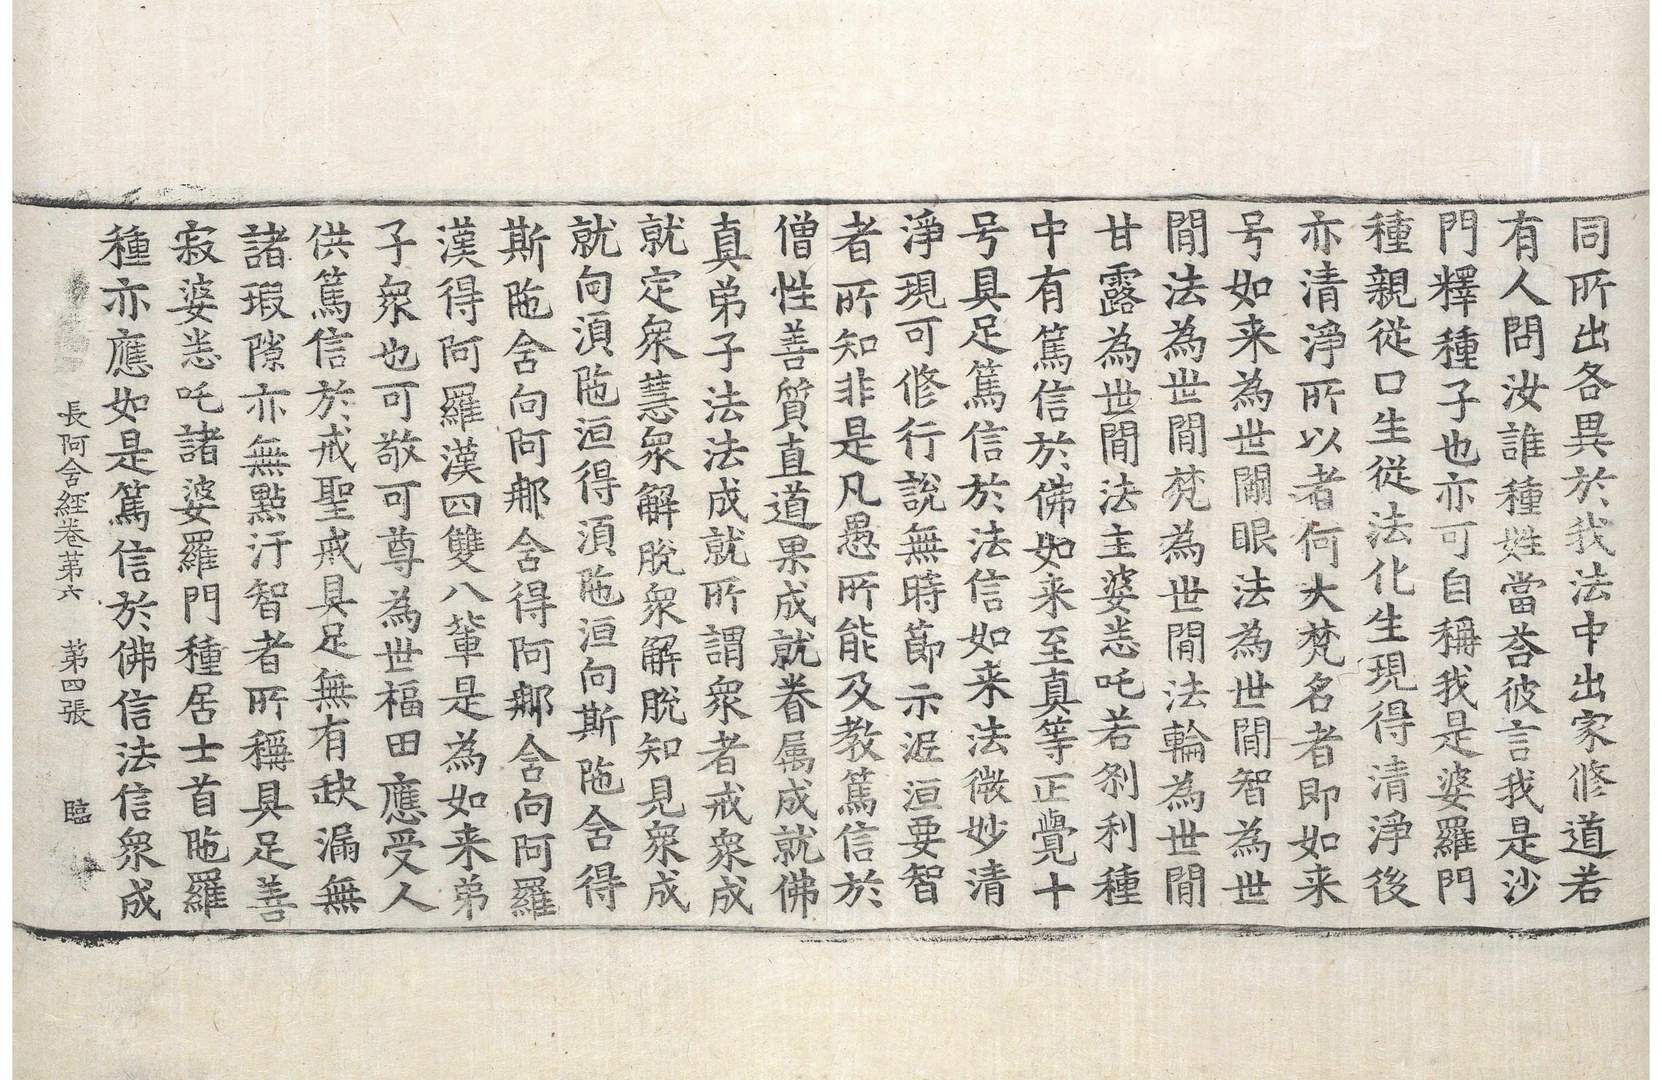 同所出各異於我法中出家修道若
有人問汝誰種姓當荅彼言我是沙
門釋種子也亦可自稱我是婆羅門
種親從口生從法化生現得清淨後
亦清淨所以者何大梵名者即如来
号如来為世閒眼法為世閒智為世
閒法為世閒梵為世閒法輪為世閒
甘露為世閒法主婆悉吒若剎利種
中有篤信於佛如来至真等正覺十
号具足篤信於法信如来法微妙清
淨現可修行說無時節示泥洹要智
者所知非是凡愚所能及教篤信於
僧性善質直道果成就眷属成就佛
真弟子法法成就所謂衆者戒衆成
就定衆慧衆解脫衆解脫知見衆成
就向湏陁洹得湏陁洹向斯陁舍得
斯陁舍向阿那舍得阿那舍向阿羅
漢得阿羅漢四雙八輩是為如来弟
子衆也可敬可尊為世福田應受人
供篤信於戒聖戒具足無有缺漏無
諸瑕隙亦無點汙智者所稱具足善
寂婆悉吒諸婆羅門種居士首陁羅
種亦應如是篤信於佛信法信衆成
長阿舍經卷苐六 苐四張 臨